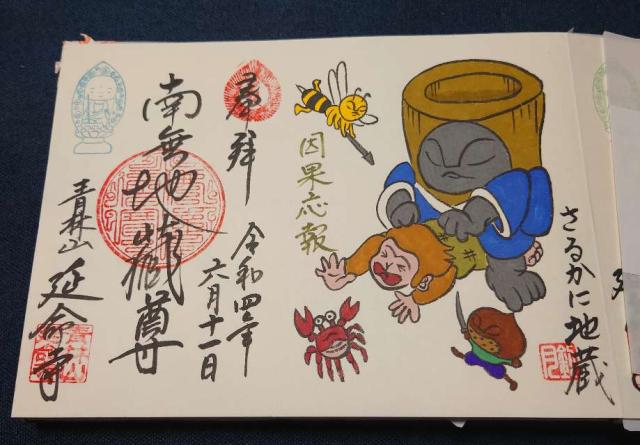 さるかに地蔵
因果応報
奉拝
令和四年
六月十一日
南無地蔵尊
青林山
延命寺